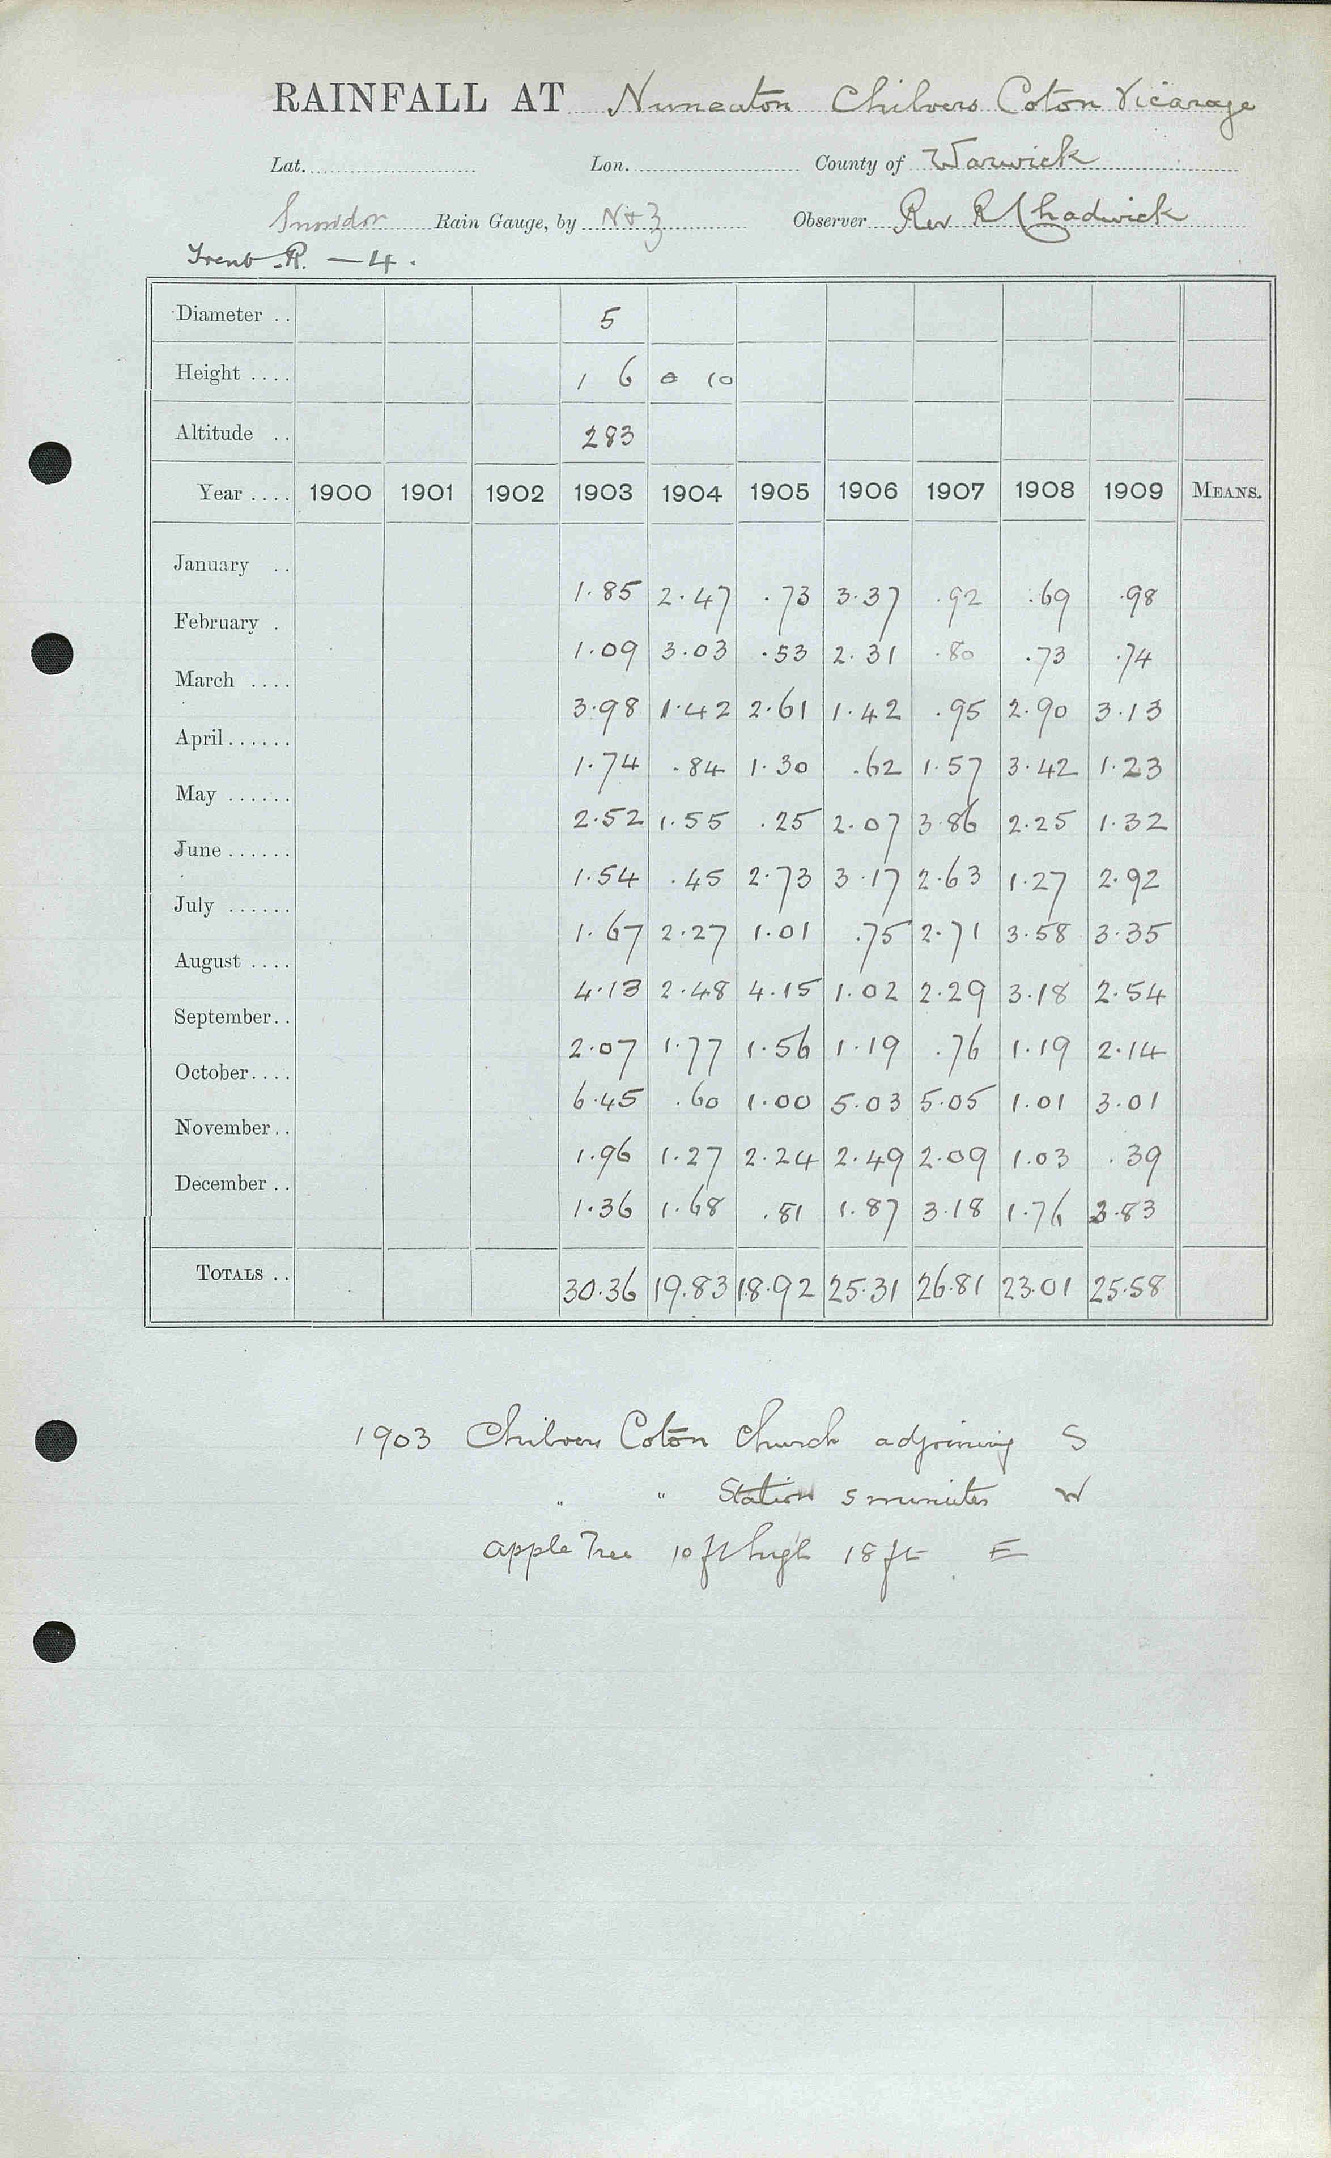 RAINFALL AT Nuneaton Chilvers Coton Vicarage
Lat. Lon. County of Warwick
Snowdon Rain Gauge, by N & Z Observer Rev R Chadwick
Trent R. — 4.
Diameter .. 5
Height .... 1 6 0 10
Altitude .. 283
Year .... 1900 1901 1902 1903 1904 1905 1906 1907 1908 1909 MEANS.
January .. 1.85 2.47 .73 3.37 .92 .69 .98
February . 1.09 3.03 .53 2.31 .80 .73 .74
March .... 3.98 1.42 2.61 1.42 .95 2.90 3.13
April ...... 1.74 .84 1.30 .62 1.57 3.42 1.23
May ...... 2.52 1.55 .25 2.07 3.86 2.25 1.32
June ...... 1.54 .45 2.73 3.17 2.63 1.27 2.92
July ...... 1.67 2.27 1.01 .75 2.71 3.58 3.35
August .... 4.13 2.48 4.15 1.02 2.29 3.18 2.54
September .. 2.07 1.77 1.56 1.19 .76 1.19 2.14
October .... 6.45 .60 1.00 5.03 5.05 1.01 3.01
November .. 1.96 1.27 2.24 2.49 2.09 1.03 .39
December .. 1.36 1.68 .81 1.87 3.18 1.76 3.83
TOTALS .. 30.36 19.83 18.92 25.31 26.81 23.01 25.58
1903 Chilvers Coton Church adjoining S
" " Station 5 minutes W
apple Tree 10 ft high 18 ft E